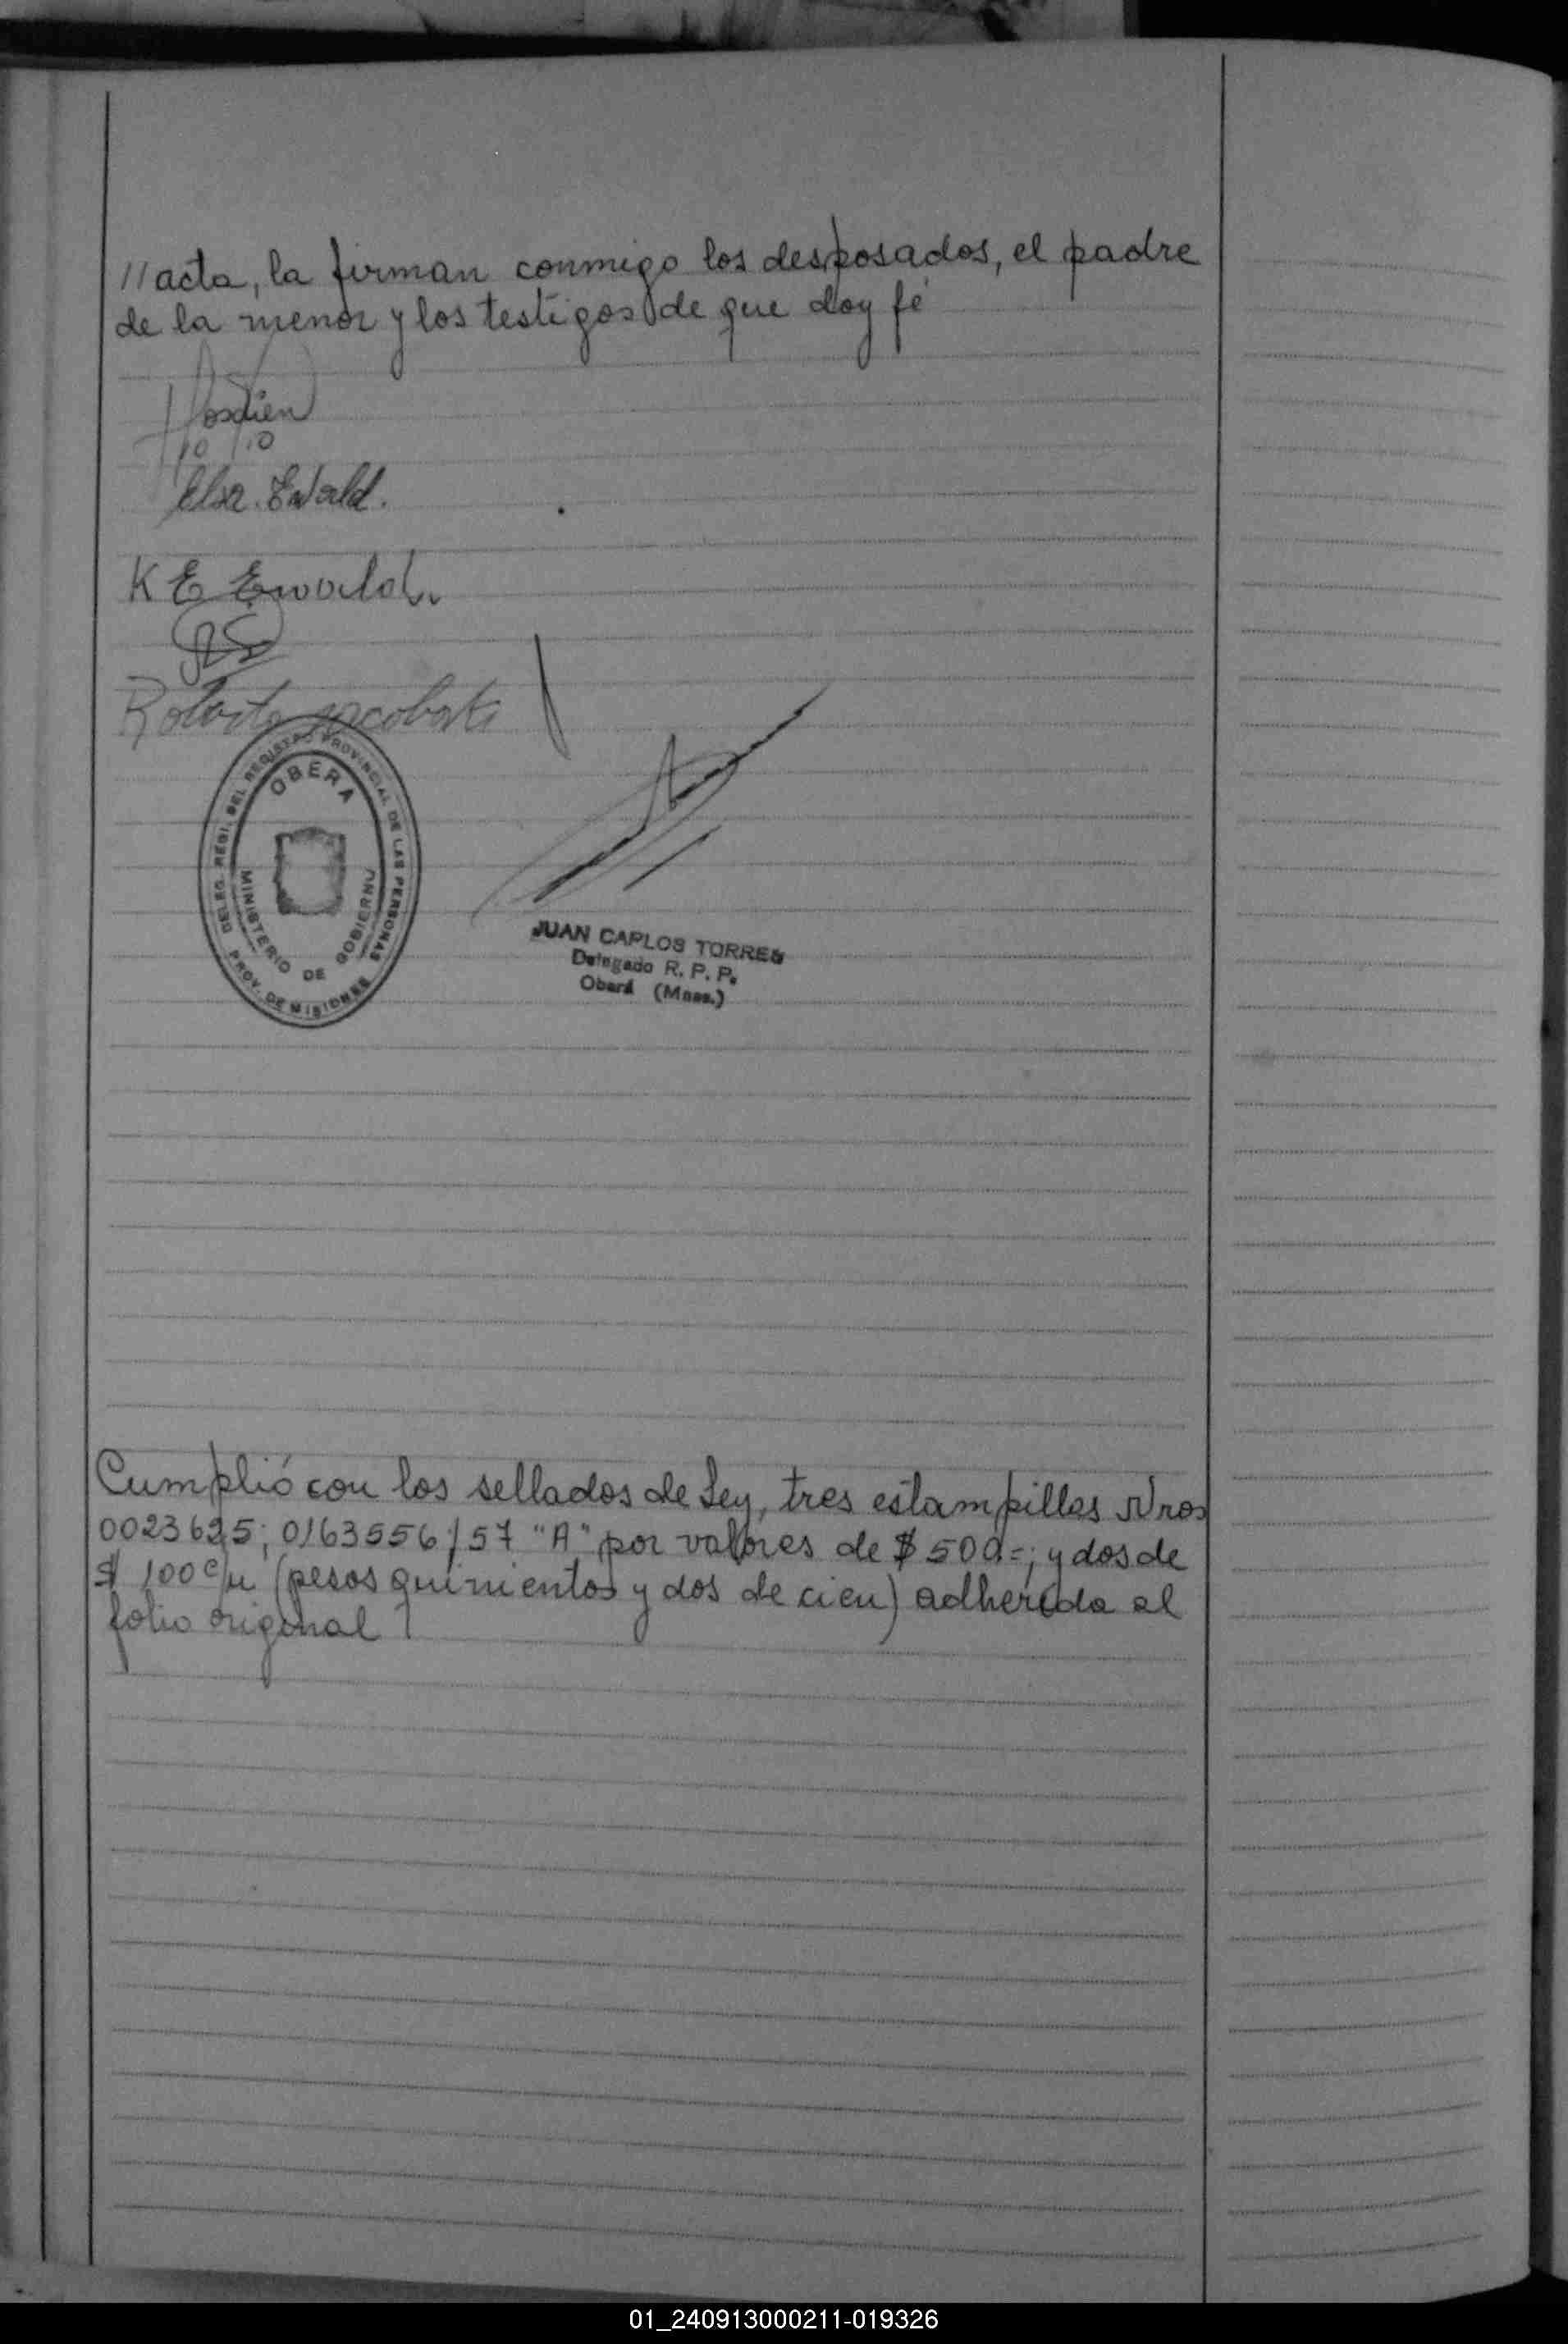 //acta, la firman conmigo los desposados, el padre
de la menor y los testigos de que doy fé
Elsa. Ewald.
K E Ewald.
Roberto
DELEG. REGI. DEL REGISTRO PROVINCIAL DE LAS PERSONAS
OBERA
MINISTERIO DE GOBIERNO
PROV. DE MISIONES
JUAN CARLOS TORRES
Delegado R. P. P.
Oberá (Mnes.)
Cumplió con los sellados de Ley, tres estampillas Nros
0023625; 0163556/57 "A" por valores de $ 500=; y dos de
$ 100 c/u (pesos quinientos y dos de cien) adherida al
folio original
01_240913000211-019326